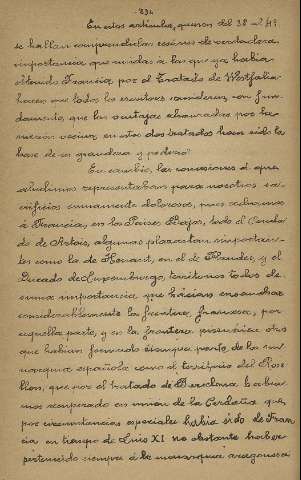 - 234 -
En estos artículos, que son del 38 al 41
se hallan comprendidas cesiones de verdadera
importancia que unidas a las que ya había
obtenido Francia por el Tratado de Westfalia
hacen que todos los escritores consideren con fun-
damento, que las ventajas alcanzadas por la
nación vecina en estos dos tratados hayan sido la
base de su grandeza y poderío.
En cambio, las concesiones a que
aludimos representaban para nosotros sa-
crificios sumamente dolorosos, pues cedíamos
á Francia, en los Paises Bajos, todo el Conda-
do de Artois, algunas plazas tan importan-
tes como la de Henaut, en el de Flandes, y el
Ducado de Luxemburgo, territorios todos de
suma importancia que hácian ensanchar
considerablemente la frontera francesa, por
aquella parte, y en la frontera pirenáica otros
que habían formado siempre parte de la mo-
narquia española como el territorio del Rose-
llon, que por el tratado de Barcelona había-
mos recuperado en union de la Cerdaña que,
por circunstancias especiales había sido de Fran-
cia en tiempo de Luis XI no obstante haber
pertenecido siempre á la monarquía aragonesa